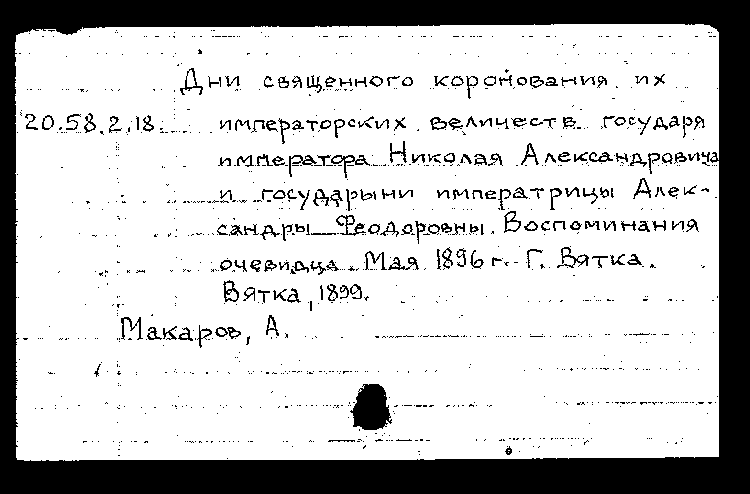 Дни священного коронования их
20.58.2.18. императорских величеств государя
императора Николая Александровича
и государыни императрицы Алек-
сандры Феодоровны. Воспоминания
очевидца. Мая 1896 г. Г. Вятка.
Вятка, 1899.
Макаров, А.